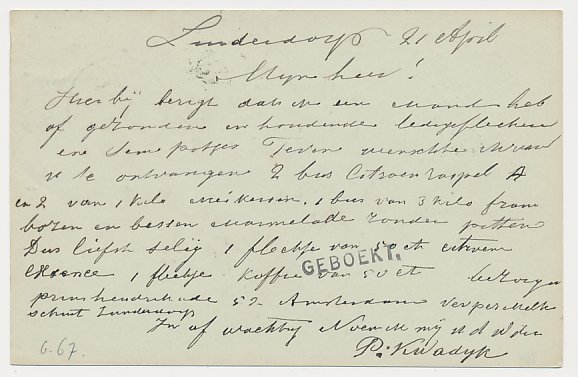 Zunderdorp 21 April
Mijn heer!
Hier bij berigt dat ik u een mand heb
af gezonden in houdende ledige flesschen
en potjes Teven wenschte ik van
u te ontvangen 2 bus Citroen raspel A
en 2 van 1 kilo Meikersen 1 bus van 3 kilo fram
bozen en bessen Marmelade zonder pitten
Dus liefst gelij 1 flechje van 50 ct citroen
essence 1 flechje koffie van 50 ct bezorgen
prins hendrik kade 52 Amsterdam per Melk
schuit Zunderdorp
In af wachting Noem ik mij u d w dr
P. Kwadijk
GEBOEKT.
6.67.